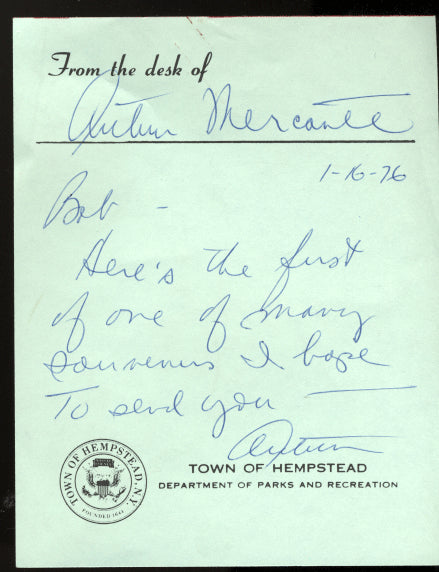 From the desk of
Arthur Mercante
1-16-76
Bob -
Here's the first
of one of many
souvenirs I hope
To send you —
Arthur
TOWN OF HEMPSTEAD
DEPARTMENT OF PARKS AND RECREATION
TOWN OF HEMPSTEAD, N.Y.
FOUNDED 1644